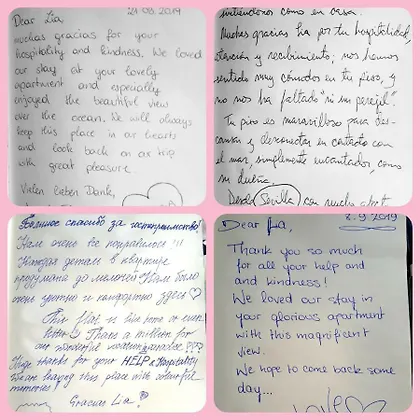 21.08.2019
Dear Lia,
muchas gracias for your
hospitality and kindness. We loved
our stay at your lovely
apartment and especially
enjoyed the beautiful view
over the ocean. We will always
keep this place in our hearts
and look back on our trip
with great pleasure.
Vielen lieben Dank,
sintiéndonos como en casa.
Muchas gracias Lia por tu hospitalidad,
atención y recibimiento; nos hemos
sentido muy cómodos en tu piso, y
no nos ha faltado "ni un perejil".
Tu piso es maravilloso para des-
cansar y desconectar en contacto con
el mar, simplemente encantador, como
su dueña.
Desde Sevilla con mucho
Большое спасибо за гостеприимство!
Нам очень все понравилось!!!
Каждая деталь в квартире
продумана до мелочей. Нам было
очень уютно и комфортно здесь ♡
This flat is like home or even
better! Thanks a million for
an wonderful
Huge thanks for your HELP & Hospitality
We are leaving this place with
memories
Gracias Lia!
8.9.2019
Dear Lia,
Thank you so much
for all your help and
and kindness!
We loved our stay in
your glorious apartment
with this magnificent
view.
We hope to come back some
day...
Love